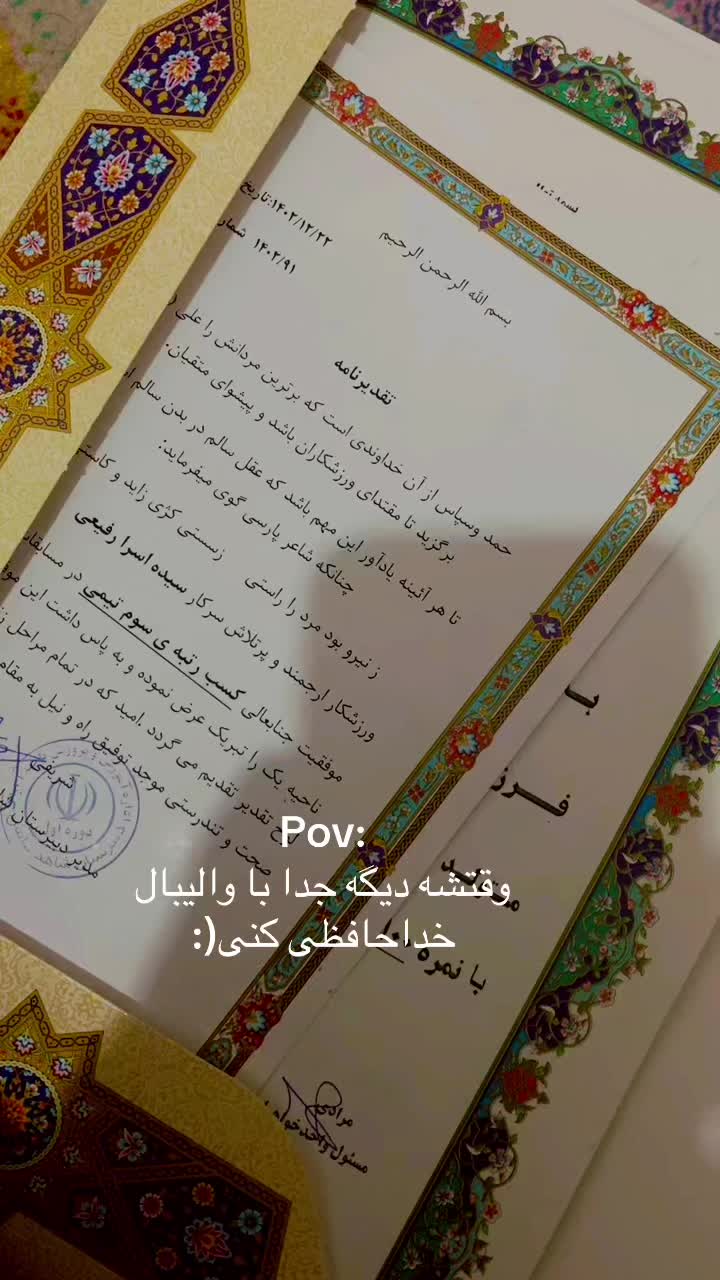 بسم الله الرحمن الرحیم
تاریخ:۱۴۰۲/۱۲/۲۲
شمار ۱۴۰۲/۹۱
تقدیرنامه
حمد وسپاس از آن خداوندی است که برترین مردانش را علی (
برگزید تا مقتدای ورزشکاران باشد و پیشوای متقیان.
تا هر آئینه یادآور این مهم باشد که عقل سالم در بدن سالم
چنانکه شاعر پارسی گوی میفرماید:
ز نیرو بود مرد را راستی ز سستی کژی زاید و کاستی
ورزشکار ارجمند و پرتلاش سرکار سیده اسرا رفیعی
موفقیت جنابعالی کسب رتبه ی سوم تیمی در مسابقات
ناحیه یک را تبریک عرض نموده و به پاس داشت این
لوح تقدیر تقدیم می گردد .امید که در تمام مراحل
صحت و تندرستی موجد توفیق راه و نیل به مقام
شریفی
مدیر دبیرستان
دوره اول
بـ
فـرز
با نمره
مرادی
مسئول واحد
Pov:
وقتشه دیگه جدا با والیبال
خداحافظی کنی(: